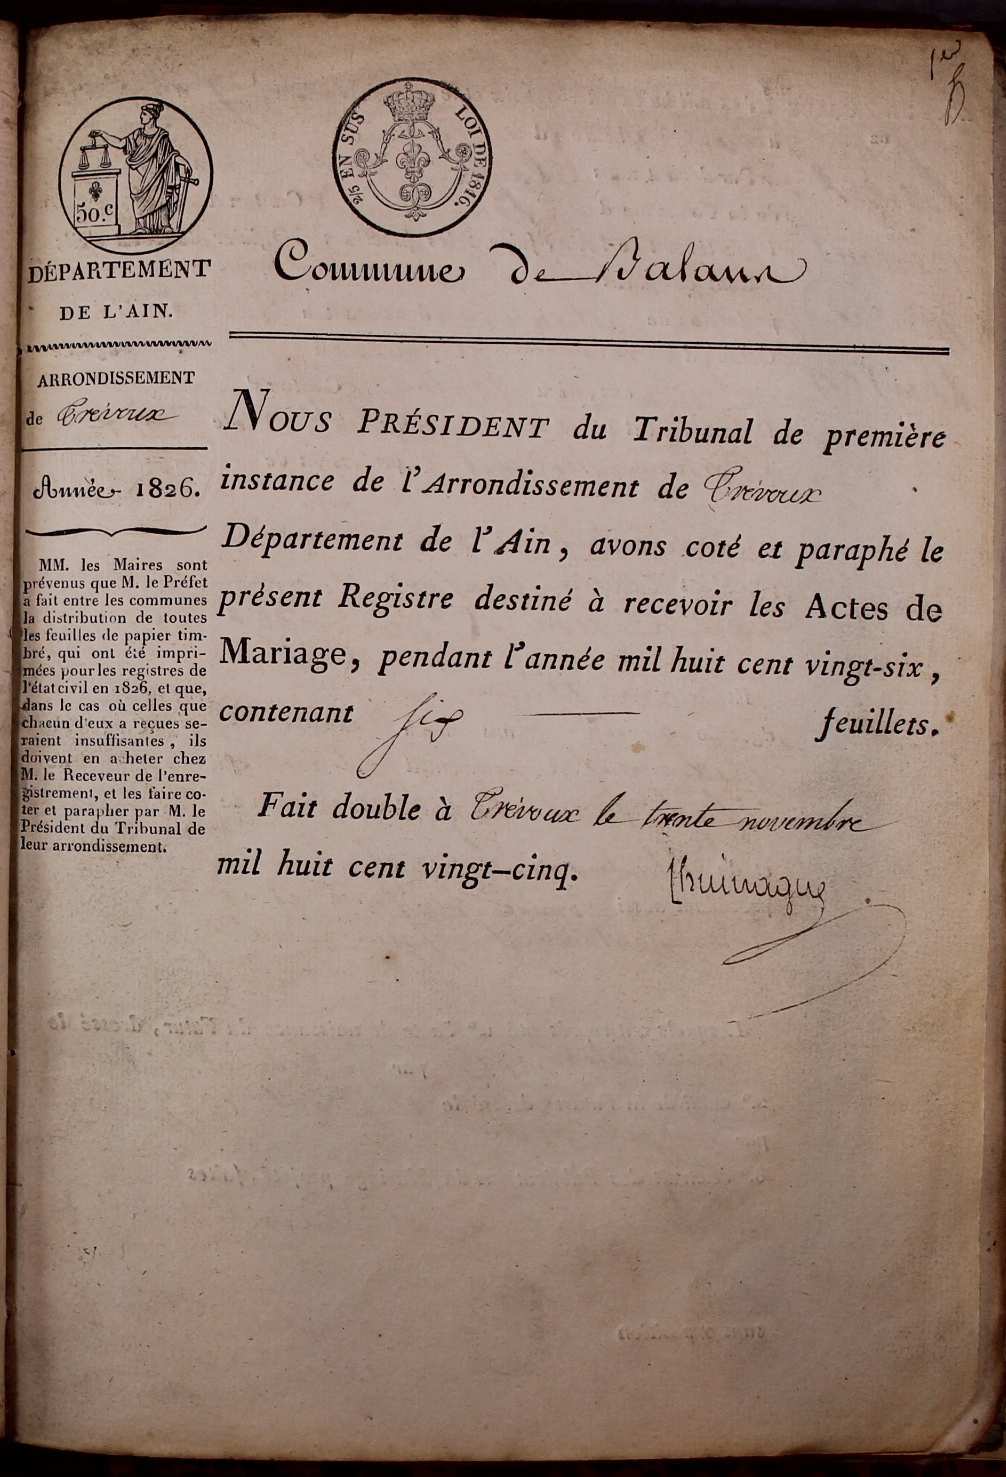 1er
50.c
2/5 EN SUS LOI DE 1816.
DÉPARTEMENT
DE L'AIN.
Commune de Balann
ARRONDISSEMENT
de Trévoux
Année 1826.
MM. les Maires sont
prévenus que M. le Préfet
a fait entre les communes
la distribution de toutes
les feuilles de papier tim-
bré, qui ont été impri-
mées pour les registres de
l'état civil en 1826, et que,
dans le cas où celles que
chacun d'eux a reçues se-
raient insuffisantes, ils
doivent en acheter chez
M. le Receveur de l'enre-
gistrement, et les faire co-
ter et parapher par M. le
Président du Tribunal de
leur arrondissement.
NOUS PRÉSIDENT du Tribunal de première
instance de l'Arrondissement de Trévoux
Département de l'Ain, avons coté et paraphé le
présent Registre destiné à recevoir les Actes de
Mariage, pendant l'année mil huit cent vingt-six,
contenant six feuillets.
Fait double à Trévoux le trente novembre
mil huit cent vingt-cinq.